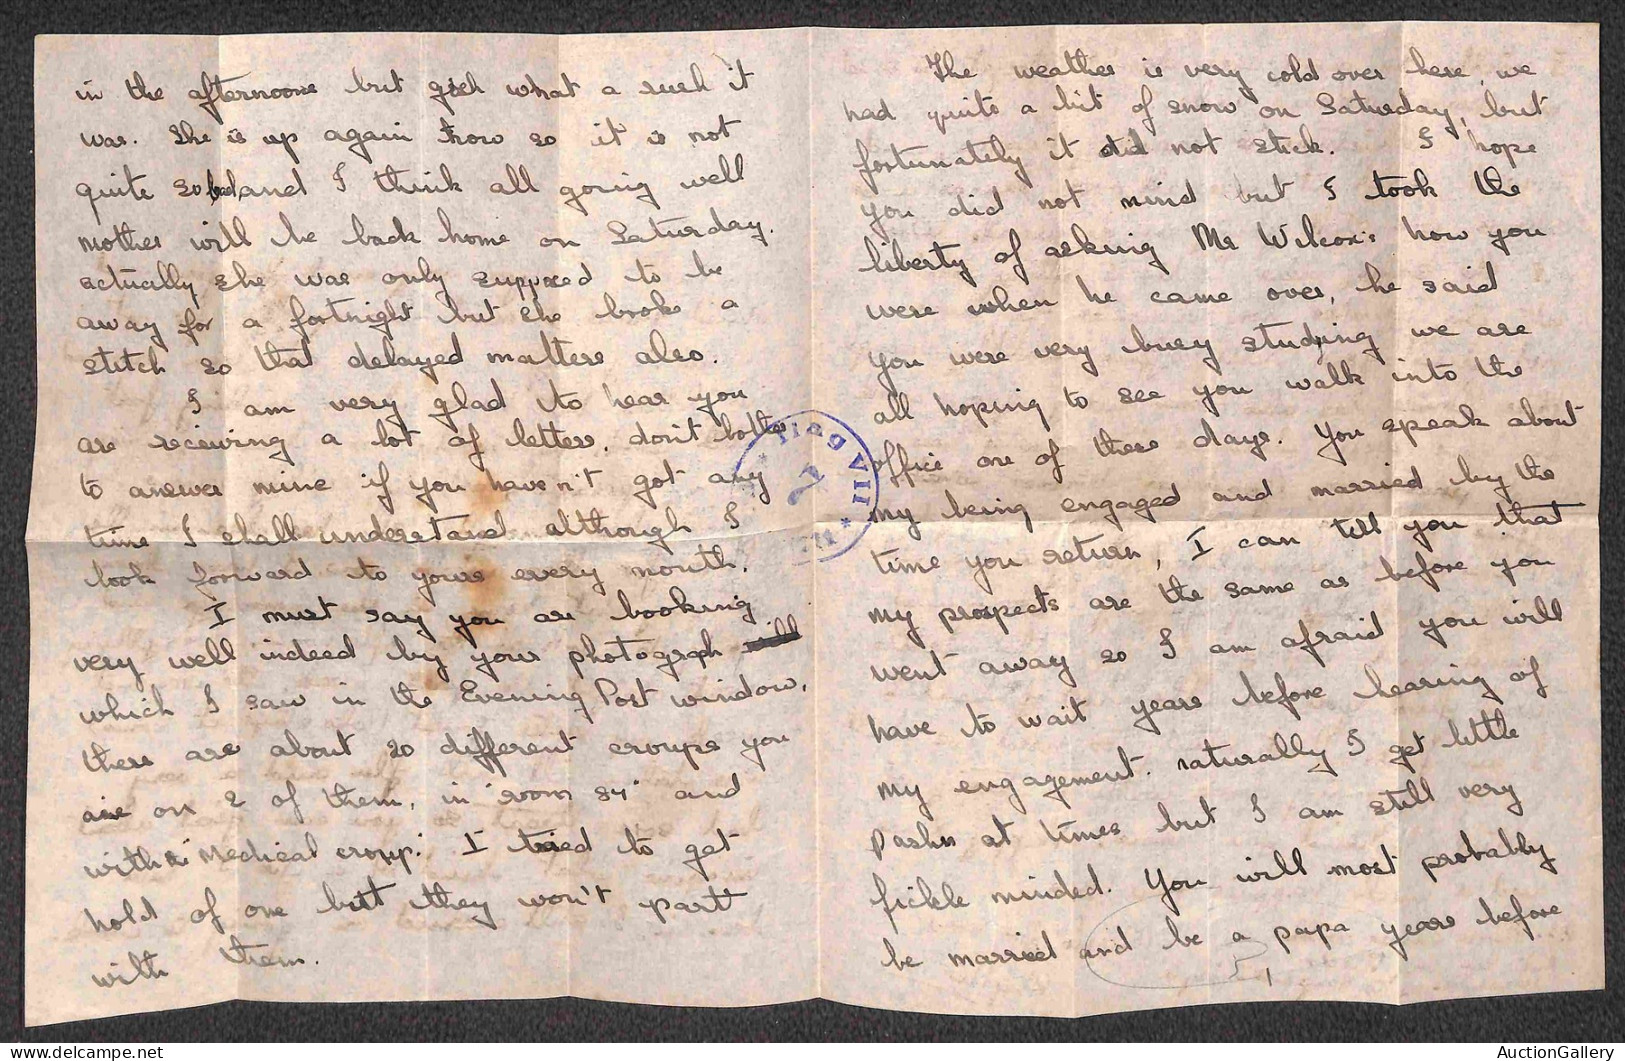 in the afternoons but gosh what a rush it
was. She is up again now so it is not
quite so bad, and I think all going well
mother will be back home on Saturday.
actually she was only supposed to be
away for a fortnight but she broke a
stitch so that delayed matters also.
I am very glad to hear you
are receiving a lot of letters, don't bother
to answer mine if you haven't got any
time I shall understand although I
look forward to yours every month.
I must say you are looking
very well indeed by your photograph
which I saw in the Evening Post window,
there are about 20 different croups you
are on 2 of them, in "room 54" and
with the Medical croup. I tried to get
hold of one butt they won't partt
with them.
The weather is very cold over here, we
had quite a bit of snow on Saturday, but
fortunately it did not stick. I hope
you did not mind but I took the
liberty of asking Mr Wilcox's how you
were when he came over, he said
you were very busy studying we are
all hoping to see you walk into the
office one of these days. You speak about
my being engaged and married by the
time you return, I can tell you that
my prospects are the same as before you
went away so I am afraid you will
have to wait years before hearing of
my engagement. naturally I get little
Pashes at times but I am still very
fickle minded. You will most probably
be married and be a papa years before
Stag VII
7
AuctionGallery
delcampe.net